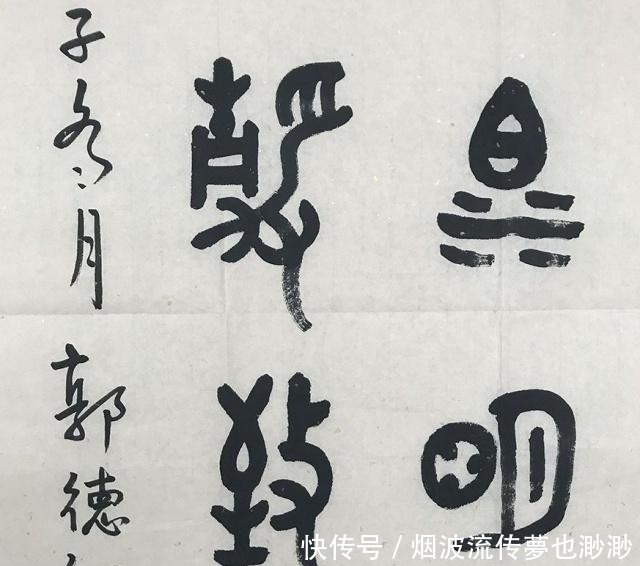 明
致
子冬月
郭德
快传号 / 烟波流传夢也渺渺